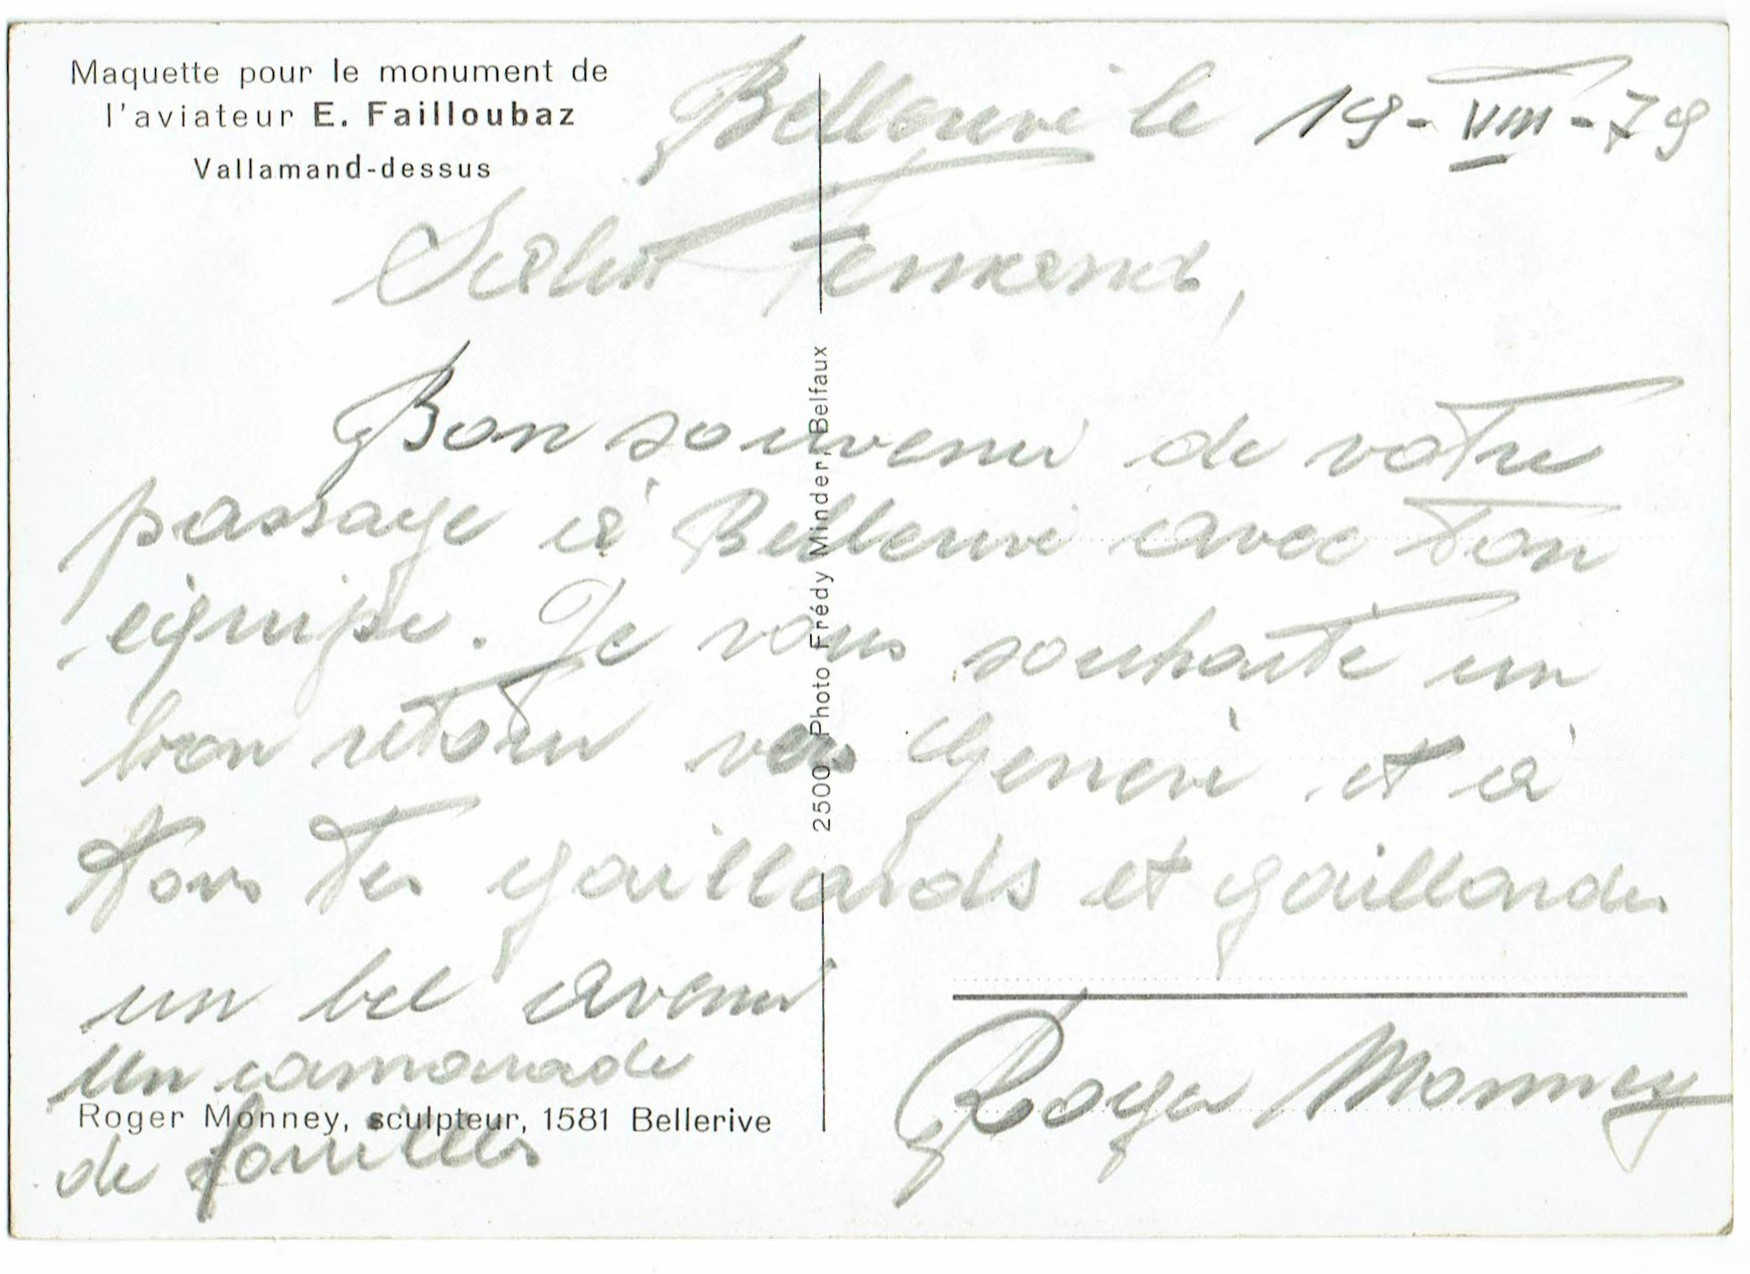 Maquette pour le monument de
l'aviateur E. Failloubaz
Vallamand-dessus
Bellerive le 19-VIII-79
Salut Fernand,
Bon souvenir de votre
passage à Bellerive avec ton
équipe. Je vous souhaite un
bon retour vers Genève et à
tous tes gaillards et gaillardes
un bel avenir
Un camarade
de fouilles
Roger Monney
Roger Monney, sculpteur, 1581 Bellerive
2500 Photo Frédy Minder, Belfaux